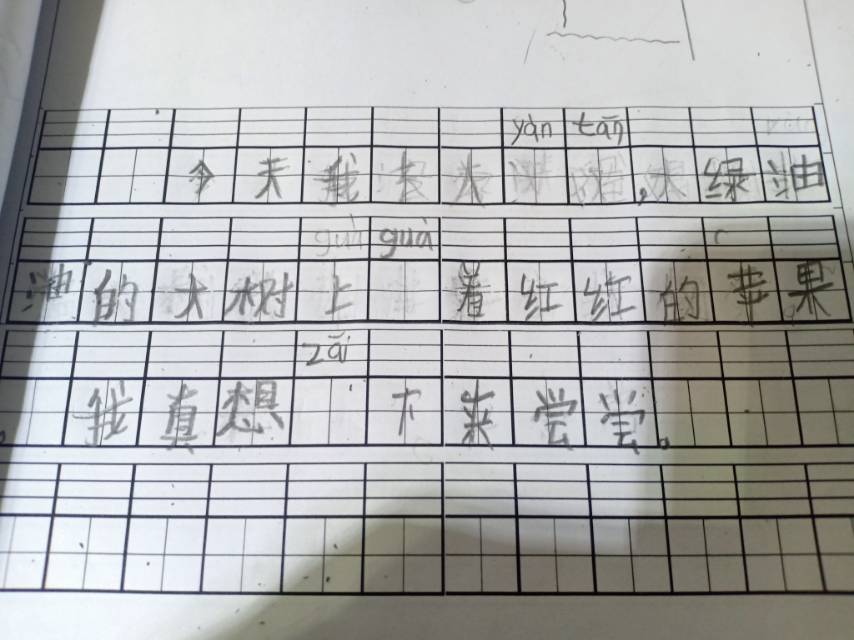 yàn tān
今天我，绿油
guà guà
油的大树上 着红红的苹果
zāi
。我真想 下来尝尝。